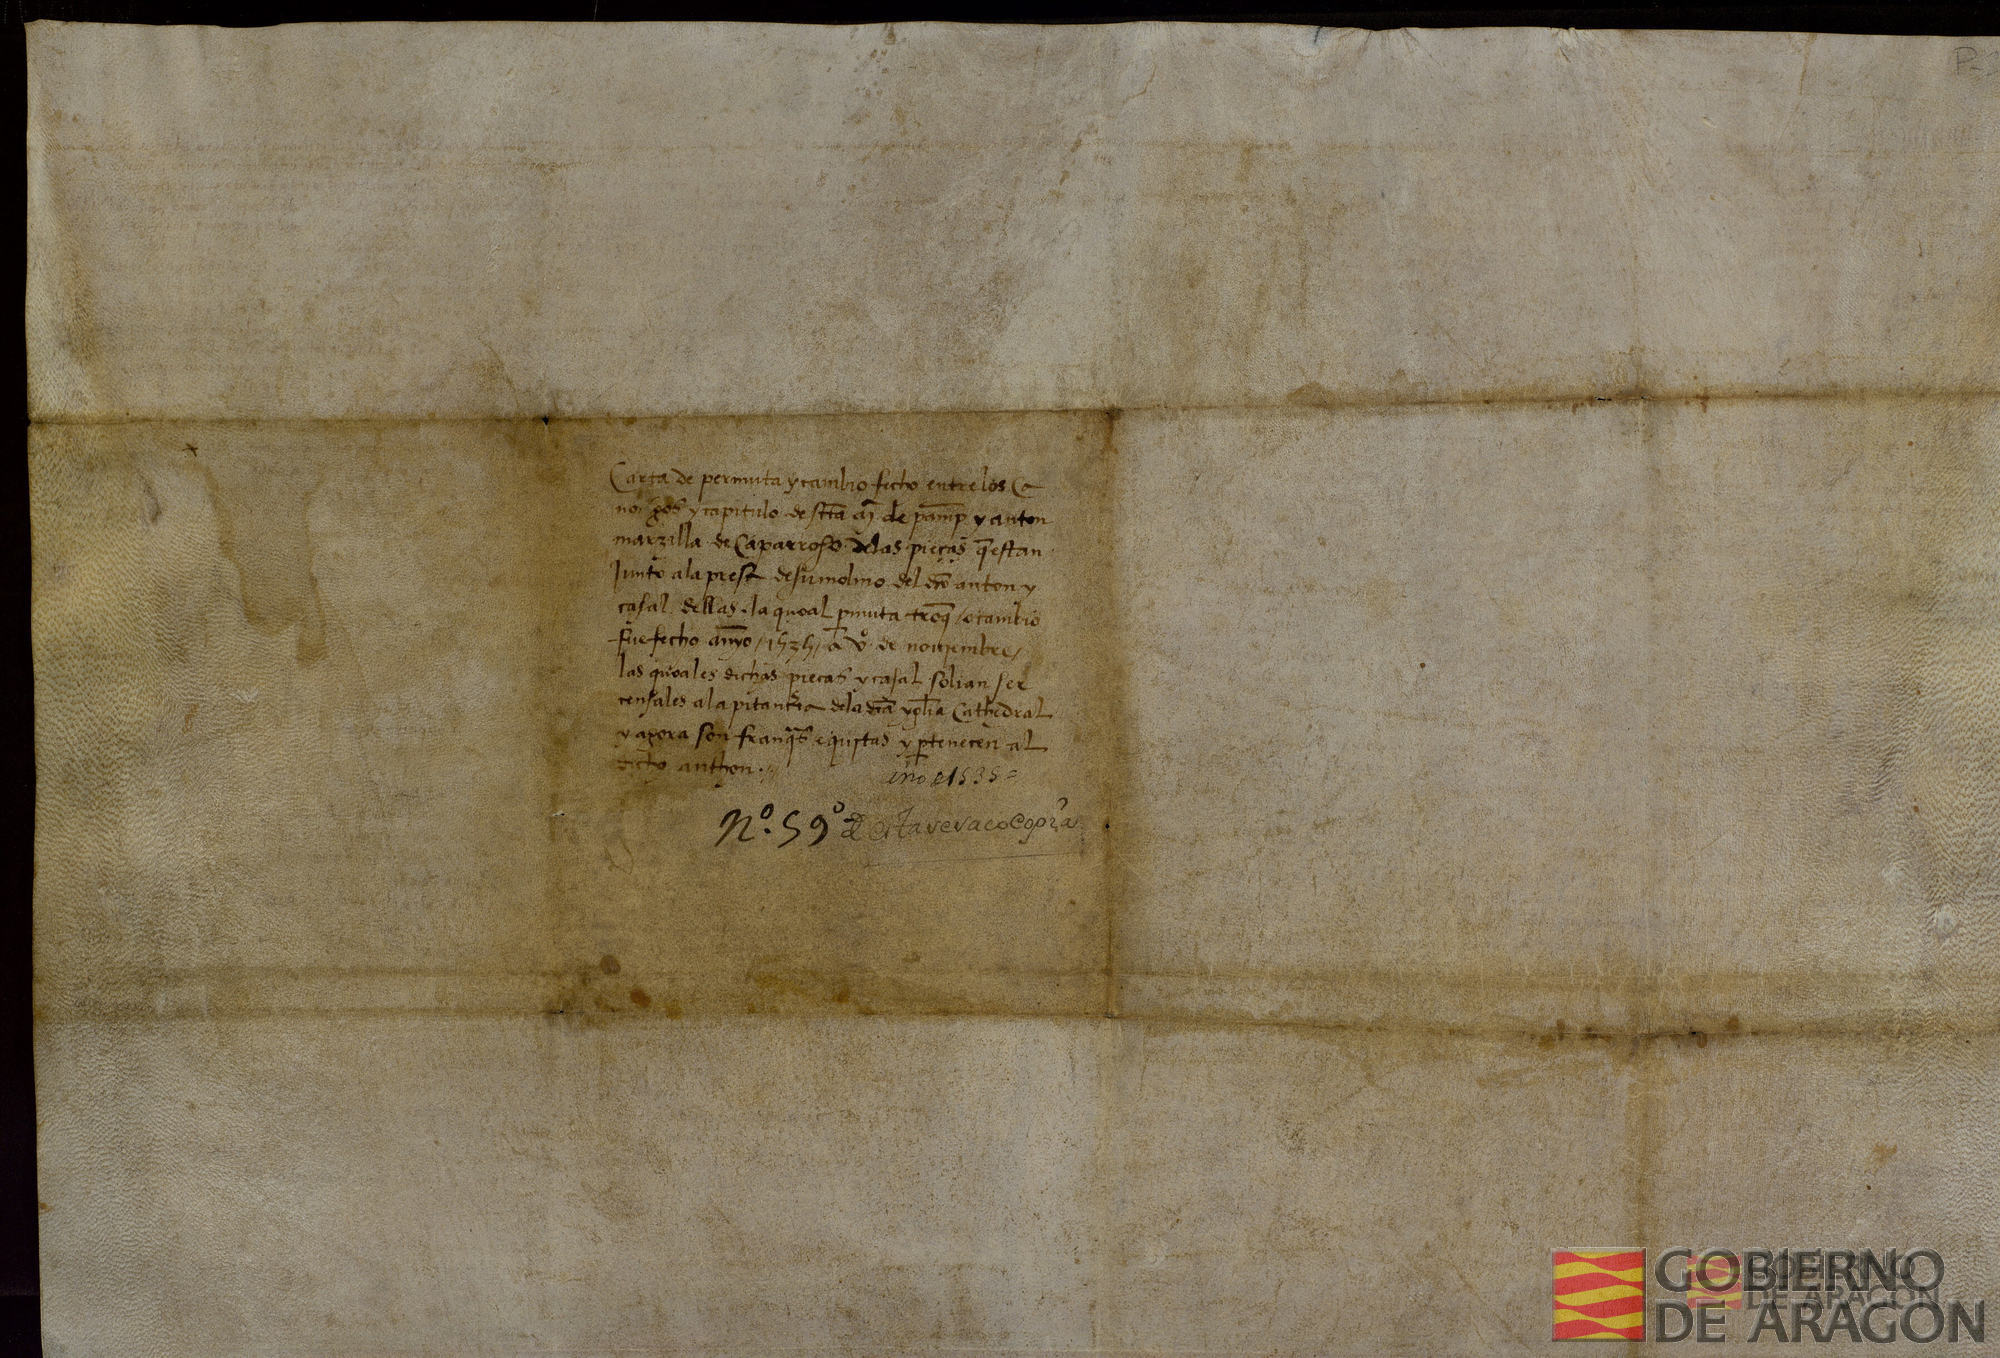 Carta de permuta y cambio fecho entre los Ca
noi gos y capitulo de scta mª de pamp y anton
marzilla de Caparroso delas pieças q estan
Junto ala presa de su molino del dcho anton y
casal dellas · la quoal pmuta troq / o cambio
fue fecho annyo / 1535 / a v.º de nouiembre /
las quoales dichas pieças y casal solian ser
censales ala pitancia dela dcha yglia Cathedral
y agora son franqs e quitas y ptenecen al
dicho anthon ·//
año d 1535 =
Nº. 59º
P-
GOBIERNO
DE ARAGON